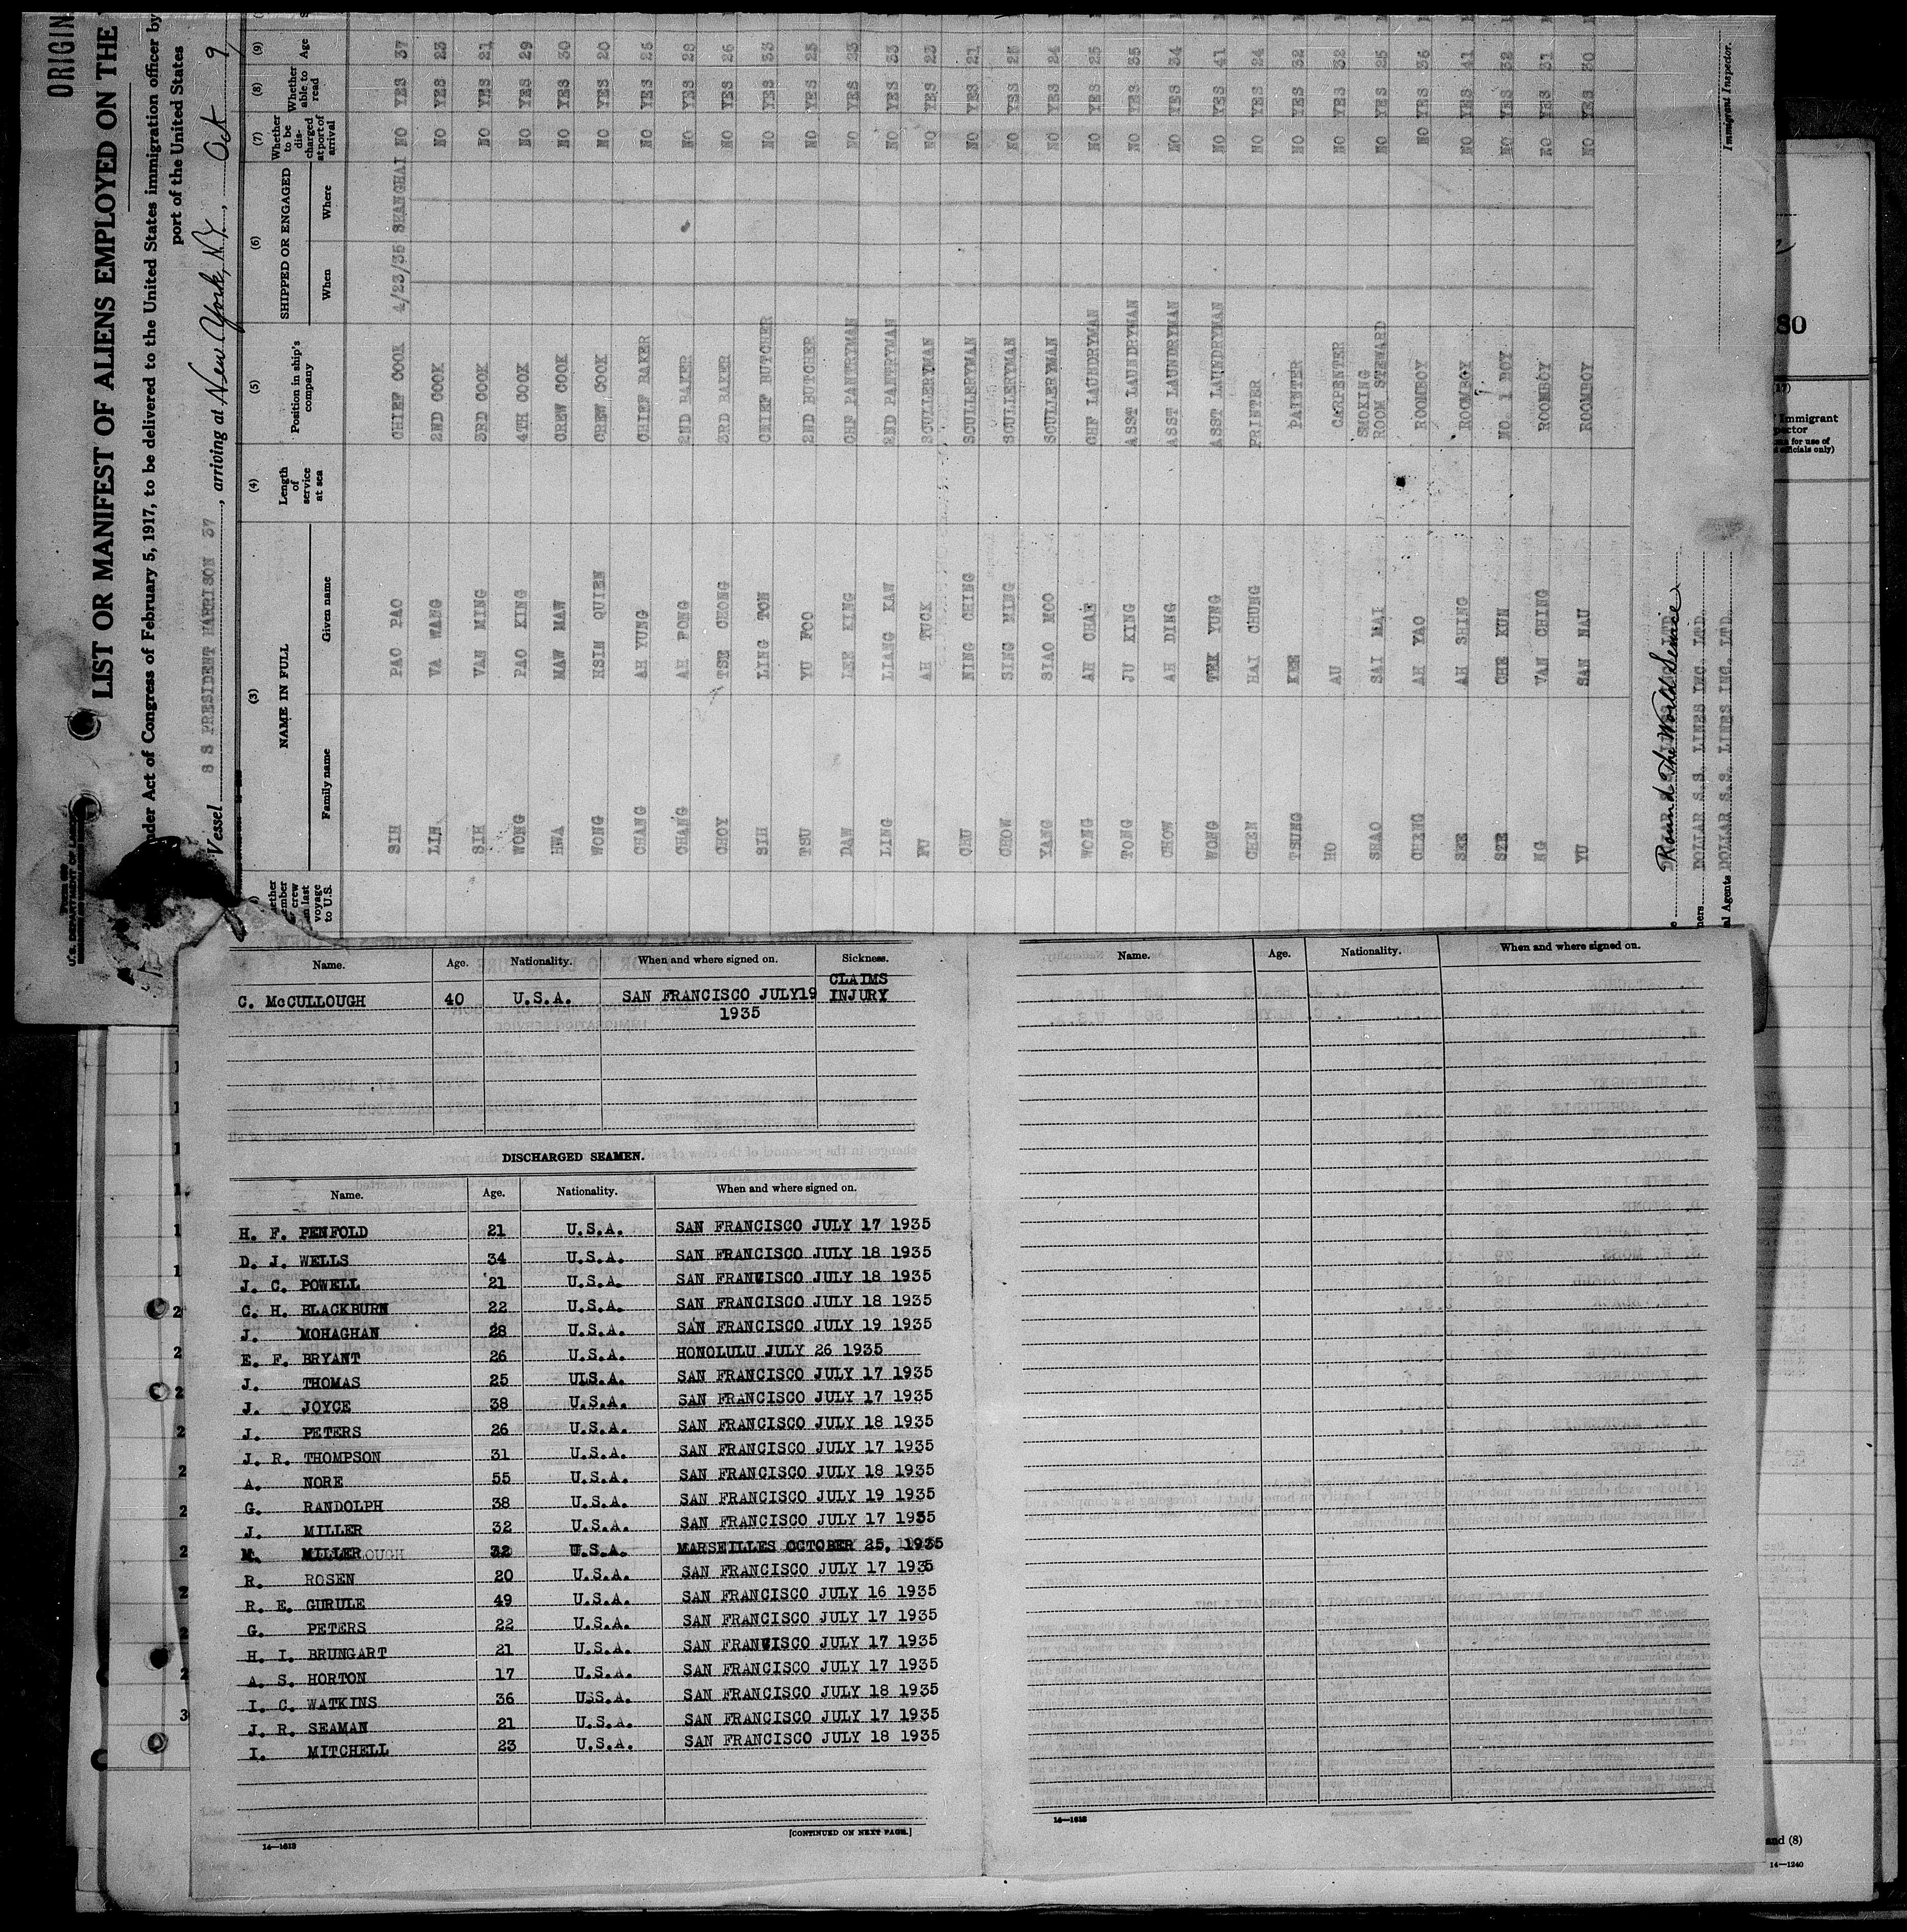 ORIGIN
LIST OR MANIFEST OF ALIENS EMPLOYED ON THE
nder Act of Congress of February 5, 1917, to be delivered to the United States immigration officer by
port of the United States
U.S. DEPARTMENT OF LABOR
Vessel S S PRESIDENT HARRISON 37, arriving at New York, N.Y., Oct 9
(3) (4) (5) (6) (7) (8) (9)
NAME IN FULL Length of service at sea Position in ship's company SHIPPED OR ENGAGED Whether to be discharged at port of arrival Whether able to read Age
ether mber crew n last voyage to U.S. Family name Given name When Where
SIH PAO PAO CHIEF COOK 4/23/35 SHANGHAI NO YES 37
LIN VA WANG 2ND COOK NO YES 23
SIH VAN MING 3RD COOK NO YES 21
WONG PAO KING 4TH COOK NO YES 29
HWA MAW MAW CREW COOK NO YES 30
WONG HSIN QUIEN CREW COOK NO YES 20
CHANG AH YUNG CHIEF BAKER NO YES 26
CHANG AH FONG 2ND BAKER NO YES 28
CHOY TSE CHONG 3RD BAKER NO YES 26
SIH LING TON CHIEF BUTCHER NO YES 33
TSU YU FOO 2ND BUTCHER NO YES 25
DAW LEE KING CHF PANTRYMAN NO YES 23
LING LIANG KAW 2ND PANTRYMAN NO YES 33
FU AH TUCK SCULLERYMAN NO YES 23
CHU NING CHING SCULLERYMAN NO YES 21
CHOW SING MING SCULLERYMAN NO YES 25
YANG SIAO MOO SCULLERYMAN NO YES 24
WONG AH CHAE CHF LAUNDRYMAN NO YES 25
TONG JU KING ASST LAUNDRYMAN NO YES 35
CHOW AH DING ASST LAUNDRYMAN NO YES 34
WONG TEK YUNG ASST LAUNDRYMAN NO YES 41
CHEN HAI CHUNG PRINTER NO YES 24
TSUNG KEE PAINTER NO YES 32
HO AU CARPENTER NO YES 32
SHAO SAI MAI SMOKING ROOM STEWARD NO YES 25
CHENG AH YAO ROOMBOY NO YES 36
SEE AH SHING ROOMBOY NO YES 41
SZE CHE KUN NO. 1 BOY NO YES 32
NG VAN CHING ROOMBOY NO YES 31
YU SAN NAU ROOMBOY NO YES 30
Round The World Service
ners DOLLAR S.S. LINES INC. LTD.
al Agents DOLLAR S.S. LINES INC. LTD.
Immigrant Inspector.
80
(17)
Immigrant
pector
for use of
officials only)
Name. Age. Nationality. When and where signed on. Sickness.
C. McCULLOUGH 40 U.S.A. SAN FRANCISCO JULY19 1935 CLAIMS INJURY
DISCHARGED SEAMEN.
Name. Age. Nationality. When and where signed on.
H. F. PENFOLD 21 U.S.A. SAN FRANCISCO JULY 17 1935
D. J. WELLS 34 U.S.A. SAN FRANCISCO JULY 18 1935
J. C. POWELL 21 U.S.A. SAN FRANCISCO JULY 18 1935
C. H. BLACKBURN 22 U.S.A. SAN FRANCISCO JULY 18 1935
J. MOHAGHAN 28 U.S.A. SAN FRANCISCO JULY 19 1935
E. F. BRYANT 26 U.S.A. HONOLULU JULY 26 1935
J. THOMAS 25 ULS.A. SAN FRANCISCO JULY 17 1935
J. JOYCE 38 U.S.A. SAN FRANCISCO JULY 17 1935
J. PETERS 26 U.S.A. SAN FRANCISCO JULY 18 1935
J. R. THOMPSON 31 U.S.A. SAN FRANCISCO JULY 17 1935
A. NORE 55 U.S.A. SAN FRANCISCO JULY 18 1935
G. RANDOLPH 38 U.S.A. SAN FRANCISCO JULY 19 1935
J. MILLER 32 U.S.A. SAN FRANCISCO JULY 17 1935
M. MILLER 32 U.S.A. MARSEILLES OCTOBER 25, 1935
R. ROSEN 20 U.S.A. SAN FRANCISCO JULY 17 1935
R. E. GURULE 49 U.S.A. SAN FRANCISCO JULY 16 1935
G. PETERS 22 U.S.A. SAN FRANCISCO JULY 17 1935
H. I. BRUNGART 21 U.S.A. SAN FRANCISCO JULY 17 1935
A. S. HORTON 17 U.S.A. SAN FRANCISCO JULY 17 1935
I. C. WATKINS 36 USS.A. SAN FRANCISCO JULY 18 1935
J. R. SEAMAN 21 U.S.A. SAN FRANCISCO JULY 17 1935
I. MITCHELL 23 U.S.A. SAN FRANCISCO JULY 18 1935
14—1618 [CONTINUED ON NEXT PAGE.]
Name. Age. Nationality. When and where signed on.
14—1618
and (8)
14—1240